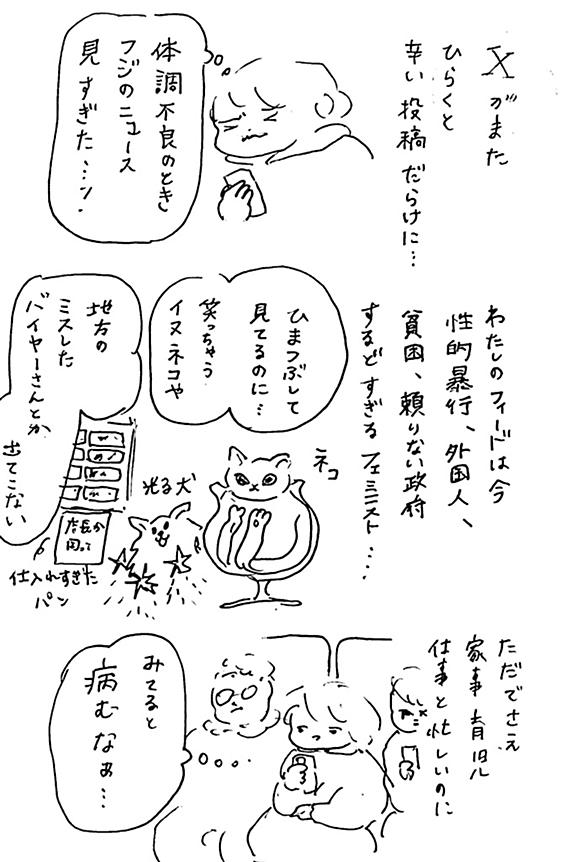 Xがまた
ひらくと
辛い投稿だらけに…
体調不良のとき
フジのニュース
見すぎた…ッ!
わたしのフィードは今
性的暴行、外国人、
貧困、頼りない政府
するどすぎるフェミニスト…
ひまつぶして
見てるのに…
笑っちゃう
イヌネコや
地方の
ミスした
バイヤーさんとか
出てこない
ネコ
光る犬
店長が
困って
仕入れすぎた
パン
ただでさえ
家事育児
仕事と忙しいのに
みてると
病むなぁ…